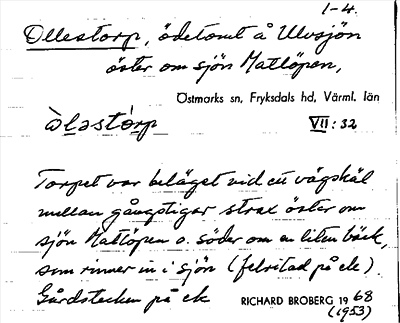 1-4.
Ollestorp, ödetomt å Ulvsjön
öster om sjön Mattöpen,
Östmarks sn, Fryksdals hd, Värml. län
òləstó̀rp VII:32
Torpet var beläget vid ett vägskäl
mellan gångstigar strax öster om
sjön Mattöpen o. söder om en liten bäck,
som rinner in i sjön (felritad på ek).
Gårdstecken på ek RICHARD BROBERG 1968
(1953)